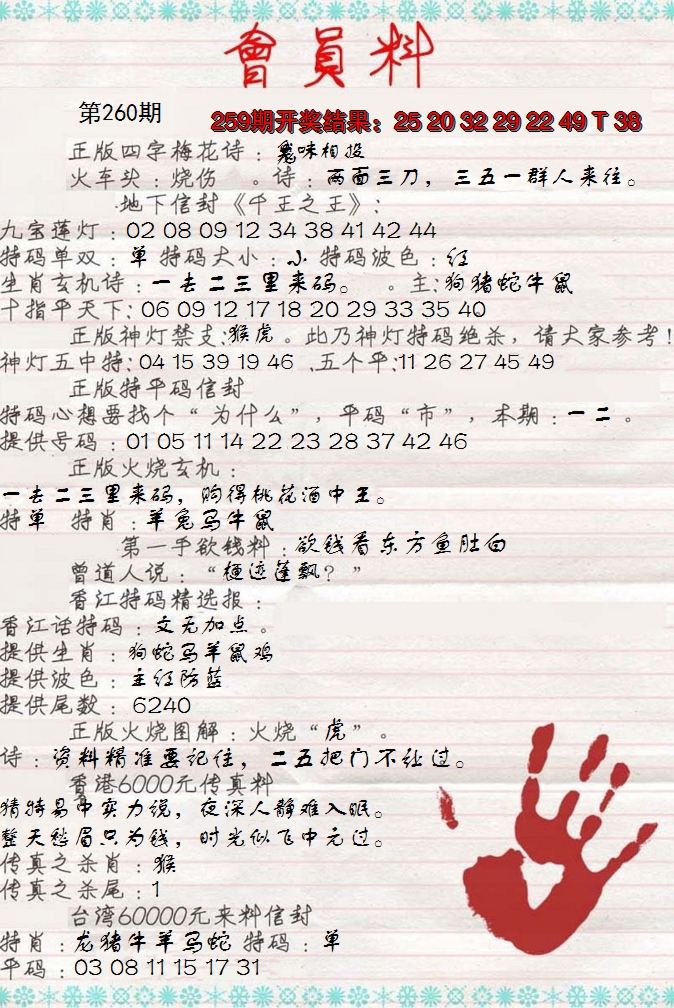 會員料
第260期
259期开奖结果：25 20 32 29 22 49 T 38
正版四字梅花诗：鬼味相投
火车头：烧伤 。诗：两面三刀，三五一群人来往。
地下信封《千王之王》：
九宝莲灯：02 08 09 12 34 38 41 42 44
特码单双：单 特码大小：小 特码波色：红
生肖玄机诗：一去二三里来码。 。主：狗猪蛇牛鼠
十指平天下：06 09 12 17 18 20 29 33 35 40
正版神灯禁支：猴虎。此乃神灯特码绝杀，请大家参考！
神灯五中特：04 15 39 19 46 .五个平：11 26 27 45 49
正版特平码信封
特码心想要找个“为什么”，平码“市”，本期：一二。
提供号码：01 05 11 14 22 23 28 37 42 46
正版火烧玄机：
一去二三里来码，购得桃花酒中王。
特单 特肖：羊兔马牛鼠
第一手欲钱料：欲钱看东方鱼肚白
曾道人说：“梗迹蓬飘？”
香江特码精选报：
香江话特码：文无加点。
提供生肖：狗蛇马羊鼠鸡
提供波色：主红防蓝
提供尾数：6240
正版火烧图解：火烧“虎”。
诗：资料精准要记住，二五把门不让过。
香港6000元传真料
猜特易中实力说，夜深人静难入眠。
整天愁眉只为钱，时光似飞中元过。
传真之杀肖：猴
传真之杀尾：1
台湾60000元来料信封
特肖：龙猪牛羊马蛇 特码：单
平码：03 08 11 15 17 31